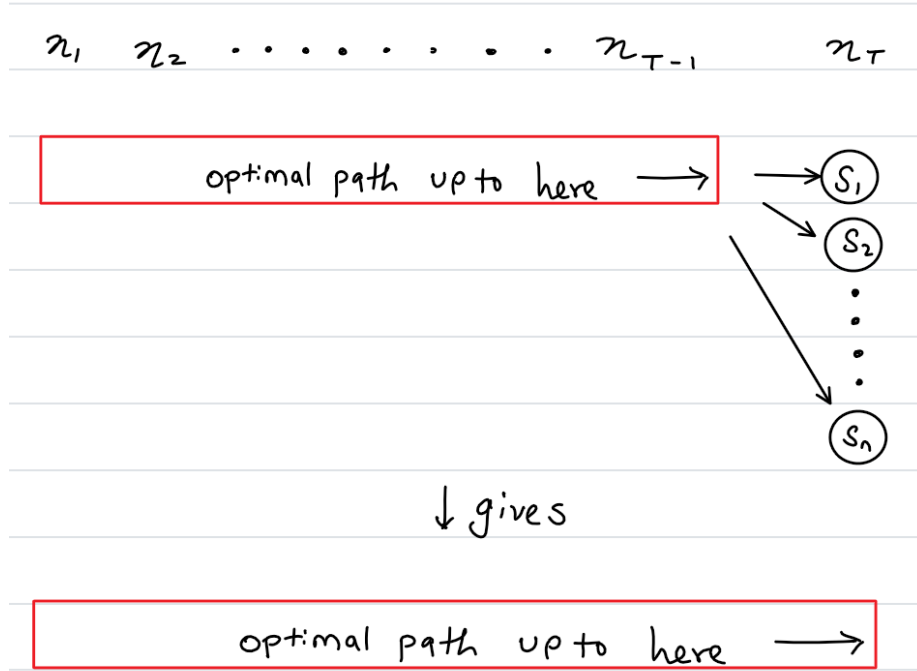 n₁ n₂ . . . . . . . . n_T-1 n_T
optimal path upto here → → S₁
S₂
Sₙ
↓ gives
optimal path upto here →